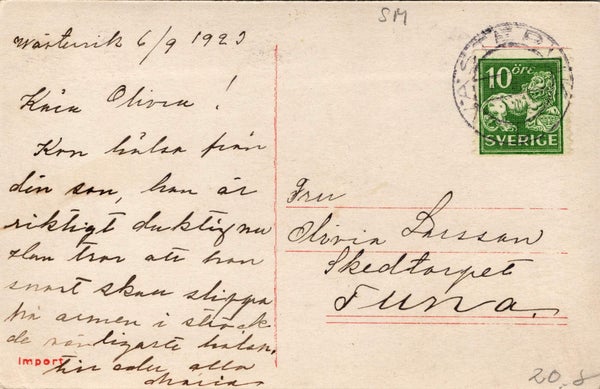 SM
Wästervik 6/9 1923
Kära Olivia!
Kan hälsa från
din son, han är
riktigt duktig nu
Han tror att han
snart skall slippa
ha armen i sträck
de hälsn.
till eder alla
Maria
Import
VÄSTERVIK
10 öre
SVERIGE
Fru
Olivia Larsson
Skedtorpet
Tuna.
20.8